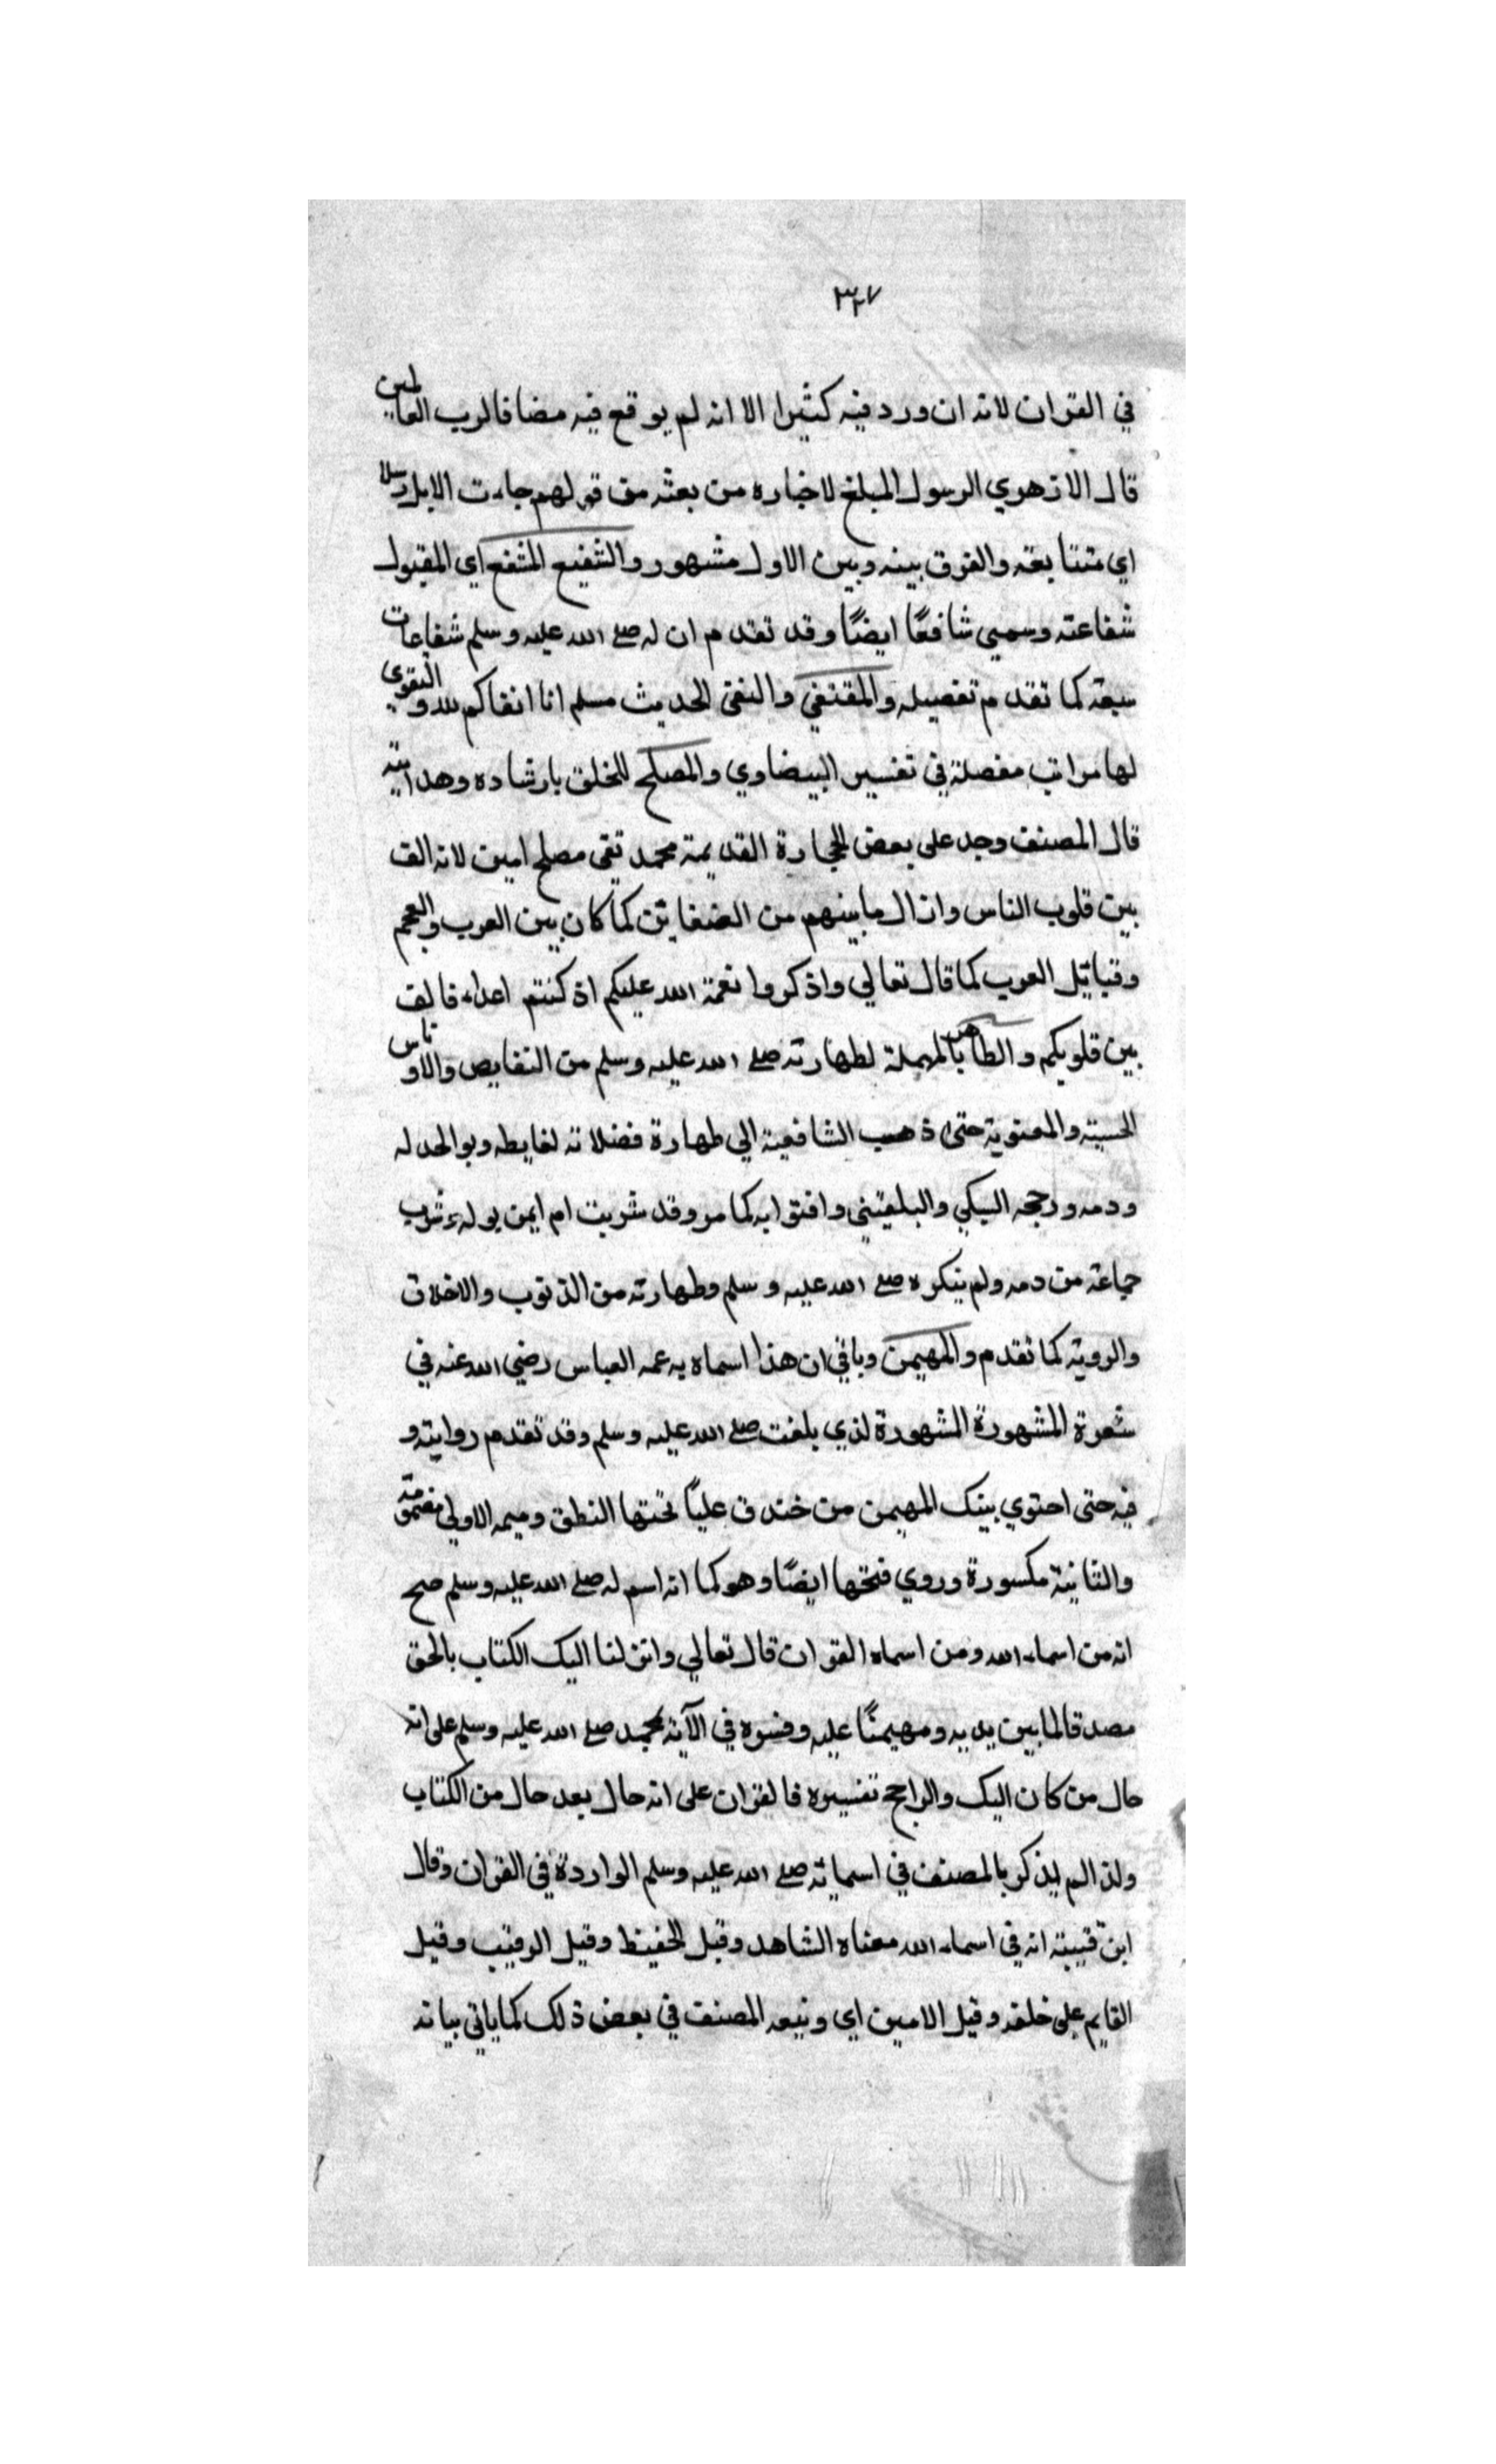 ٣٢٧
في القران لانه ان ورد فيه كثيرا الا انه لم يوقع فيه مضافا لرب العالمين
قال الازهري الرسول المبلغ لاخباره من بعثه من قولهم جاءت الابل رسلا
اي متتابعة والفرق بينه وبين الاول مشهور والشفيع المشفع اي المقبول
شفاعته وسمي شافعًا ايضًا وقد تقدم ان له صلى الله عليه وسلم شفاعات
سبعة كما تقدم تفصيله والمقتفي والتقى لحديث مسلم انا اتقاكم لله والتقوي
لها مراتب مفصلة في تفسير البيضاوي والمصلح للخلق بارشاده وهدايته
قال المصنف وجد على بعض الحجارة القديمة محمد تقى مصلح امين لانه الف
بين قلوب الناس وازال ما بينهم من الضغاين كما كان بين العرب والعجم
وقبائل العرب كما قال تعالي واذكروا نعمة الله عليكم اذ كنتم اعداء فالف
بين قلوبكم والطاهر بالمهملة لطهارته صلى الله عليه وسلم من النقايص والادناس
الحسية والمعنوية حتى ذهب الشافعية الي طهارة فضلاته لغايطه وبوله
ودمه ورجحه السبكي والبلقيني وافتوا به كما مر وقد شربت ام ايمن بوله وشرب
جماعة من دمه ولم ينكره صلى الله عليه وسلم وطهارته من الذنوب والاخلاق
والروية كما تقدم والمهيمن وياتي ان هذا اسماه به عمه العباس رضي الله عنه في
شعرة المشهورة المشهورة لذي بلغت صلى الله عليه وسلم وقد تقدم روايته و
فيه حتى احتوي بيتك المهيمن من خندف علياً تحتها النطق وميمه الاولي مضمومة
والثانية مكسورة وروي فتحها ايضًا وهو كما انه اسم له صلى الله عليه وسلم صح
انه من اسماء الله ومن اسماء القران قال تعالي وانزلنا اليك الكتاب بالحق
مصدقا لما بين يديه ومهيمنًا عليه وفسره في الآية بمحمد صلى الله عليه وسلم على انه
حال من كان اليك والراجح تفسيره فالقران على انه حال بعد حال من الكتاب
ولذا لم يذكر بالمصنف في اسمائه صلى الله عليه وسلم الواردة في القران وقال
ابن قتيبة انه في اسماء الله معناه الشاهد وقيل الحفيظ وقيل الرقيب وقيل
القايم على خلقه وقيل الامين اي وتبعه المصنف في بعض ذلك كما ياتي بيانه